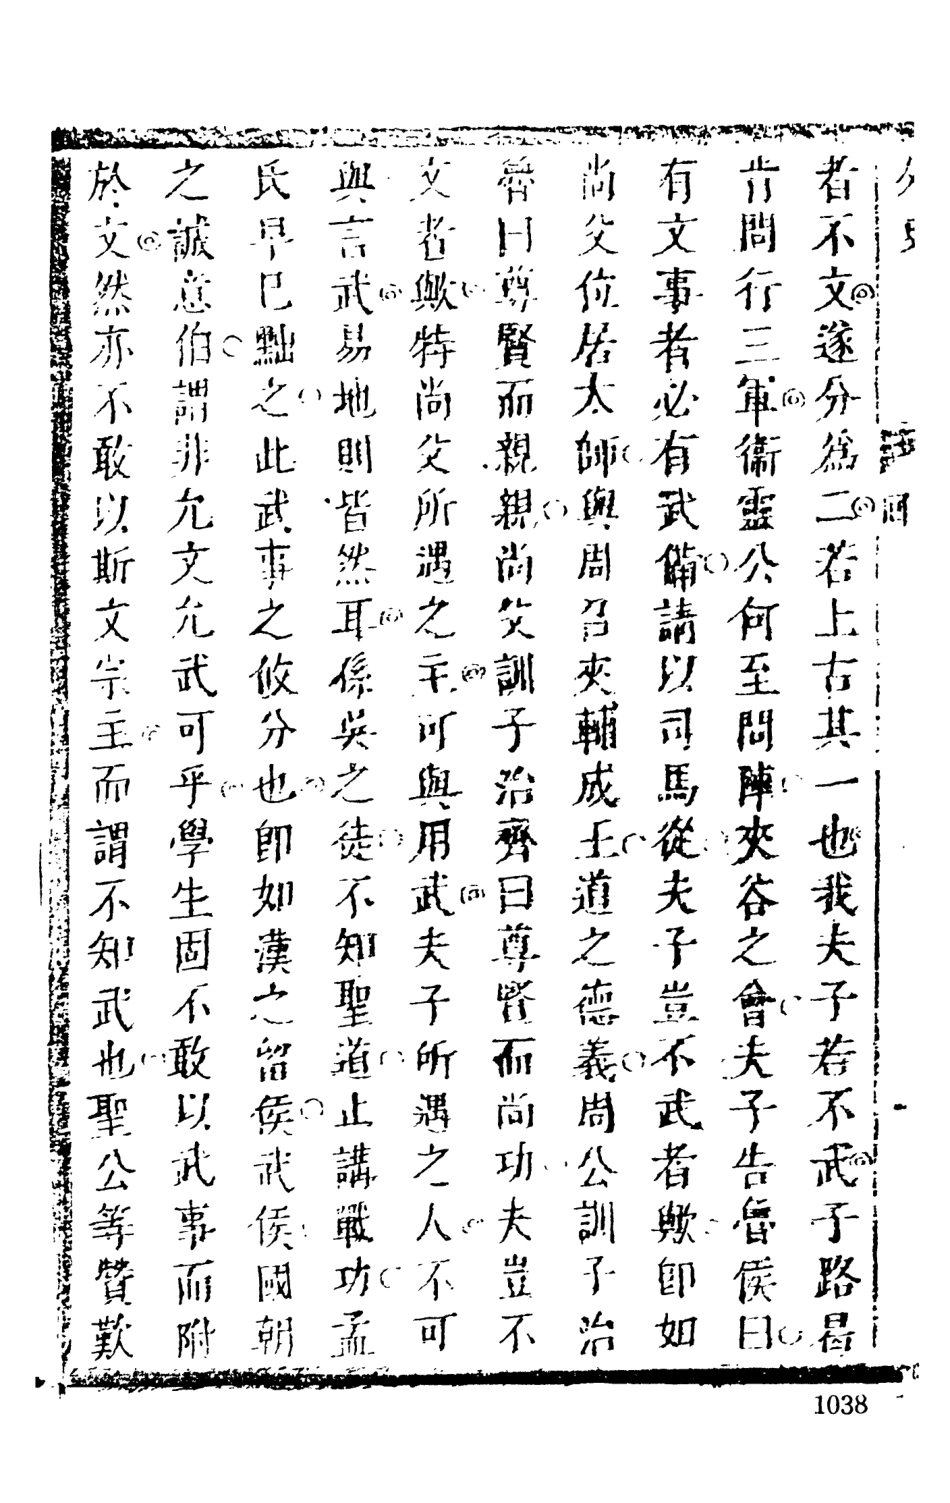 外史
者不文遂分爲二若上古其一也我夫子若不武子路曷
肯問行三軍衞靈公何至問陣夾谷之會夫子告魯侯曰
有文事者必有武備請以司馬從夫子豈不武者歟卽如
尚父位居太師與周召夾輔成王道之德義周公訓子治
魯曰尊賢而親親尚父訓子治齊曰尊賢而尚功夫豈不
文者歟特尚父所遇之主可與用武夫子所遇之人不可
與言武易地則皆然耳係吳之徒不知聖道止講戰功孟
氏早已黜之此武事之攸分也卽如漢之留侯武侯國朝
之誠意伯謂非允文允武可乎學生固不敢以武事而附
於文然亦不敢以斯文宗主而謂不知武也聖公等贊歎
1038